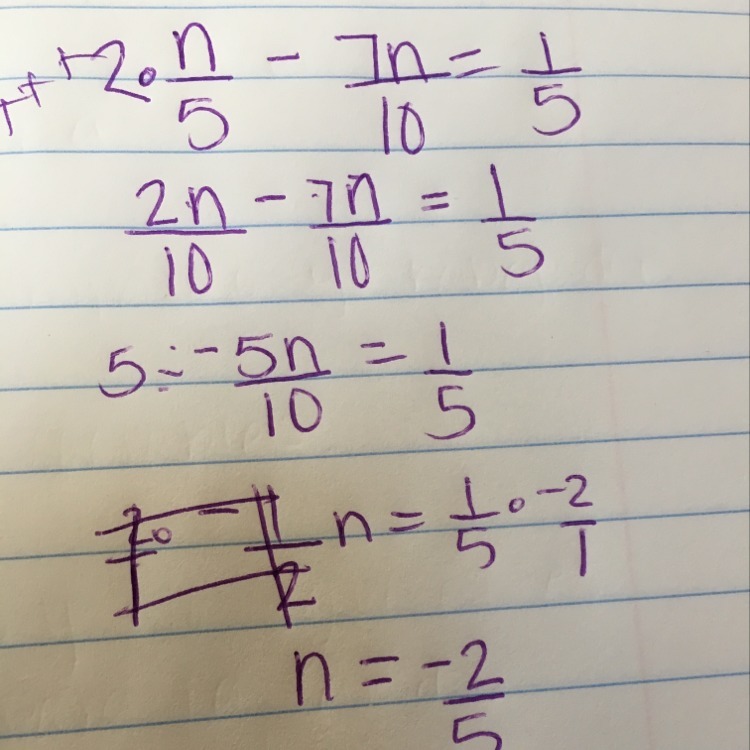 2 · n/5 - 7n/10 = 1/5
2n/10 - 7n/10 = 1/5
5 ÷ -5n/10 = 1/5
- 1/2 n = 1/5 · -2/1
n = -2/5